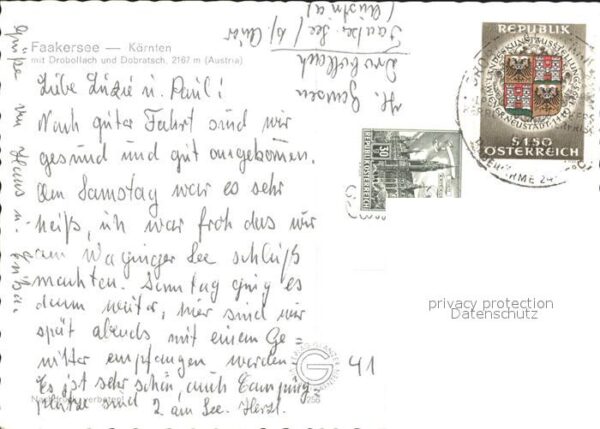 Faakersee — Kärnten
mit Drobollach und Dobratsch, 2167 m (Austria)
Liebe Luzie u. Paul!
Nach guter Fahrt sind wir
gesund und gut angekommen.
Am Samstag war es sehr
heiß, ich war froh das wir
am Waginger See schluß
machten. Sonntag ging es
dann weiter, hier sind wir
spät abends mit einem Ge=
witter empfangen worden.
Es ist sehr schön, auch Camping
plätze sind 2 am See. Herzl.
Grüße von Hans u.
H. Jansen
Drobollach
Faaker See
(Austria)
41
REPUBLIK
S 1·50
ÖSTERREICH
30
REPUBLIK ÖSTERREICH
privacy protection
Datenschutz